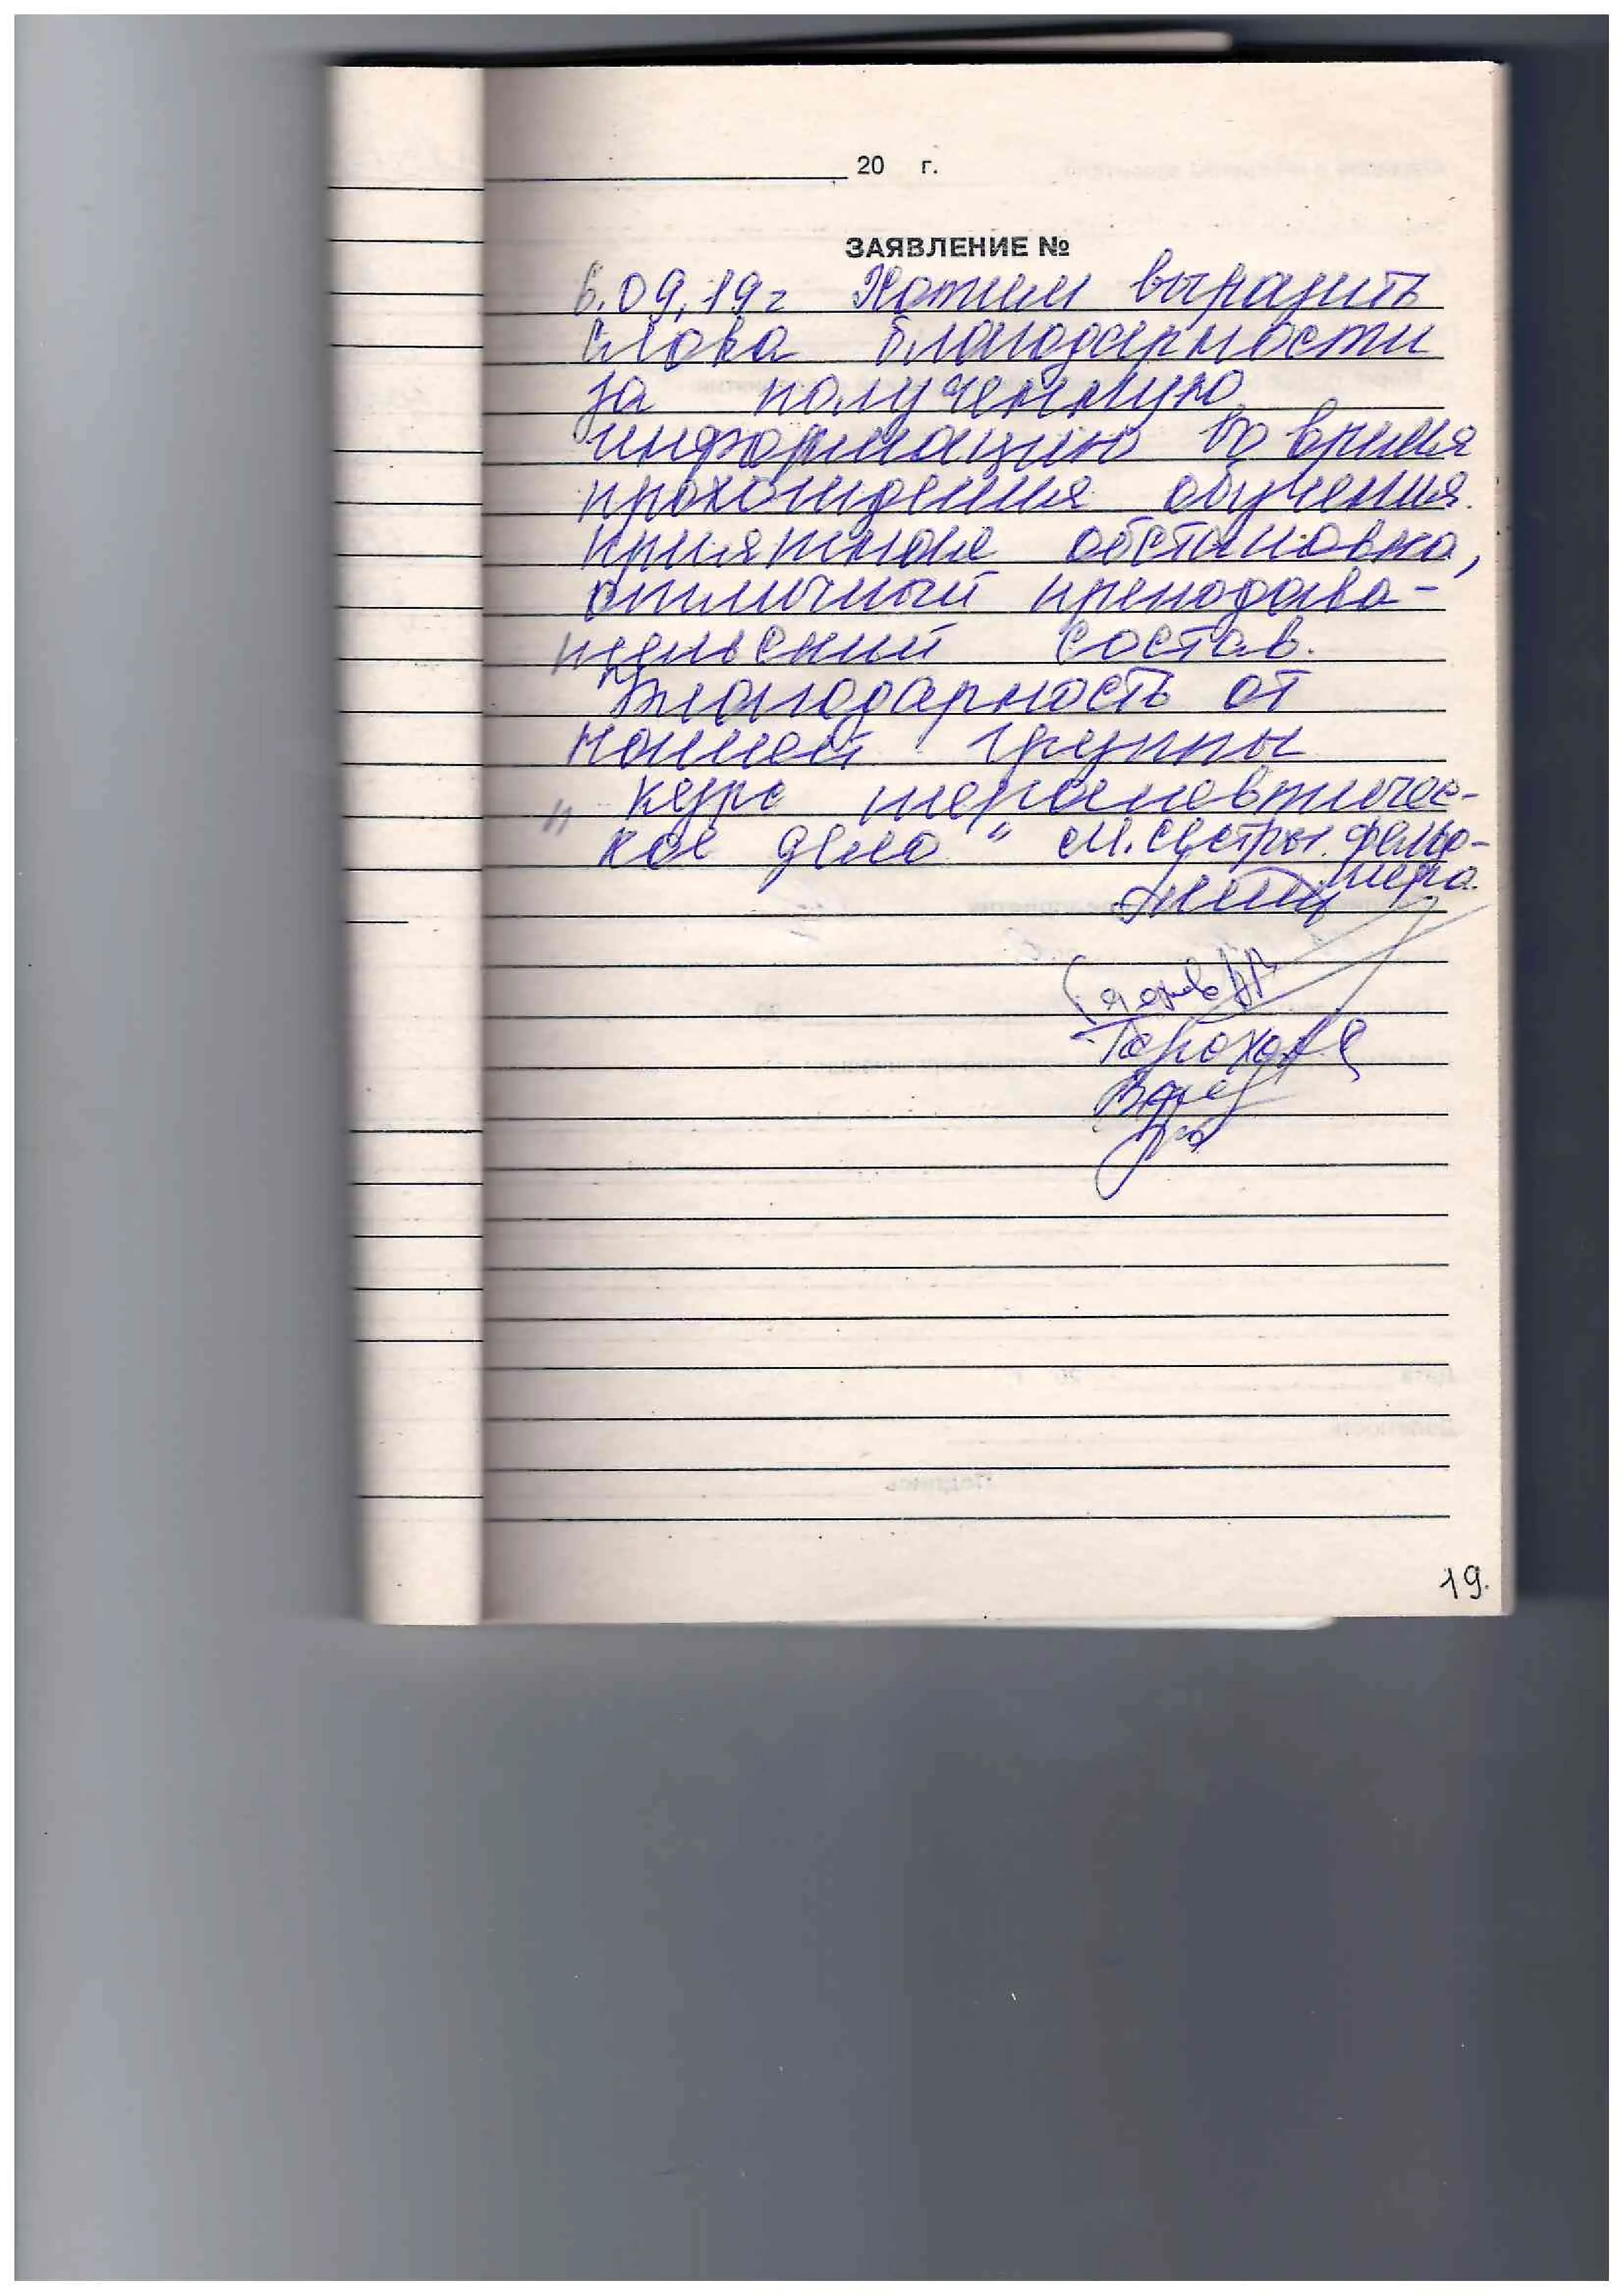 20 г.
ЗАЯВЛЕНИЕ №
6.09.19г Хотим выразить
слова благодарности
за полученную
информацию во время
прохождения обучения.
приятная обстановка,
отличный преподава-
тельский состав.
Благодарность от
нашей группы
" курс терапевтичес-
кое дело " м.сестры. фельд-
шера.
19.